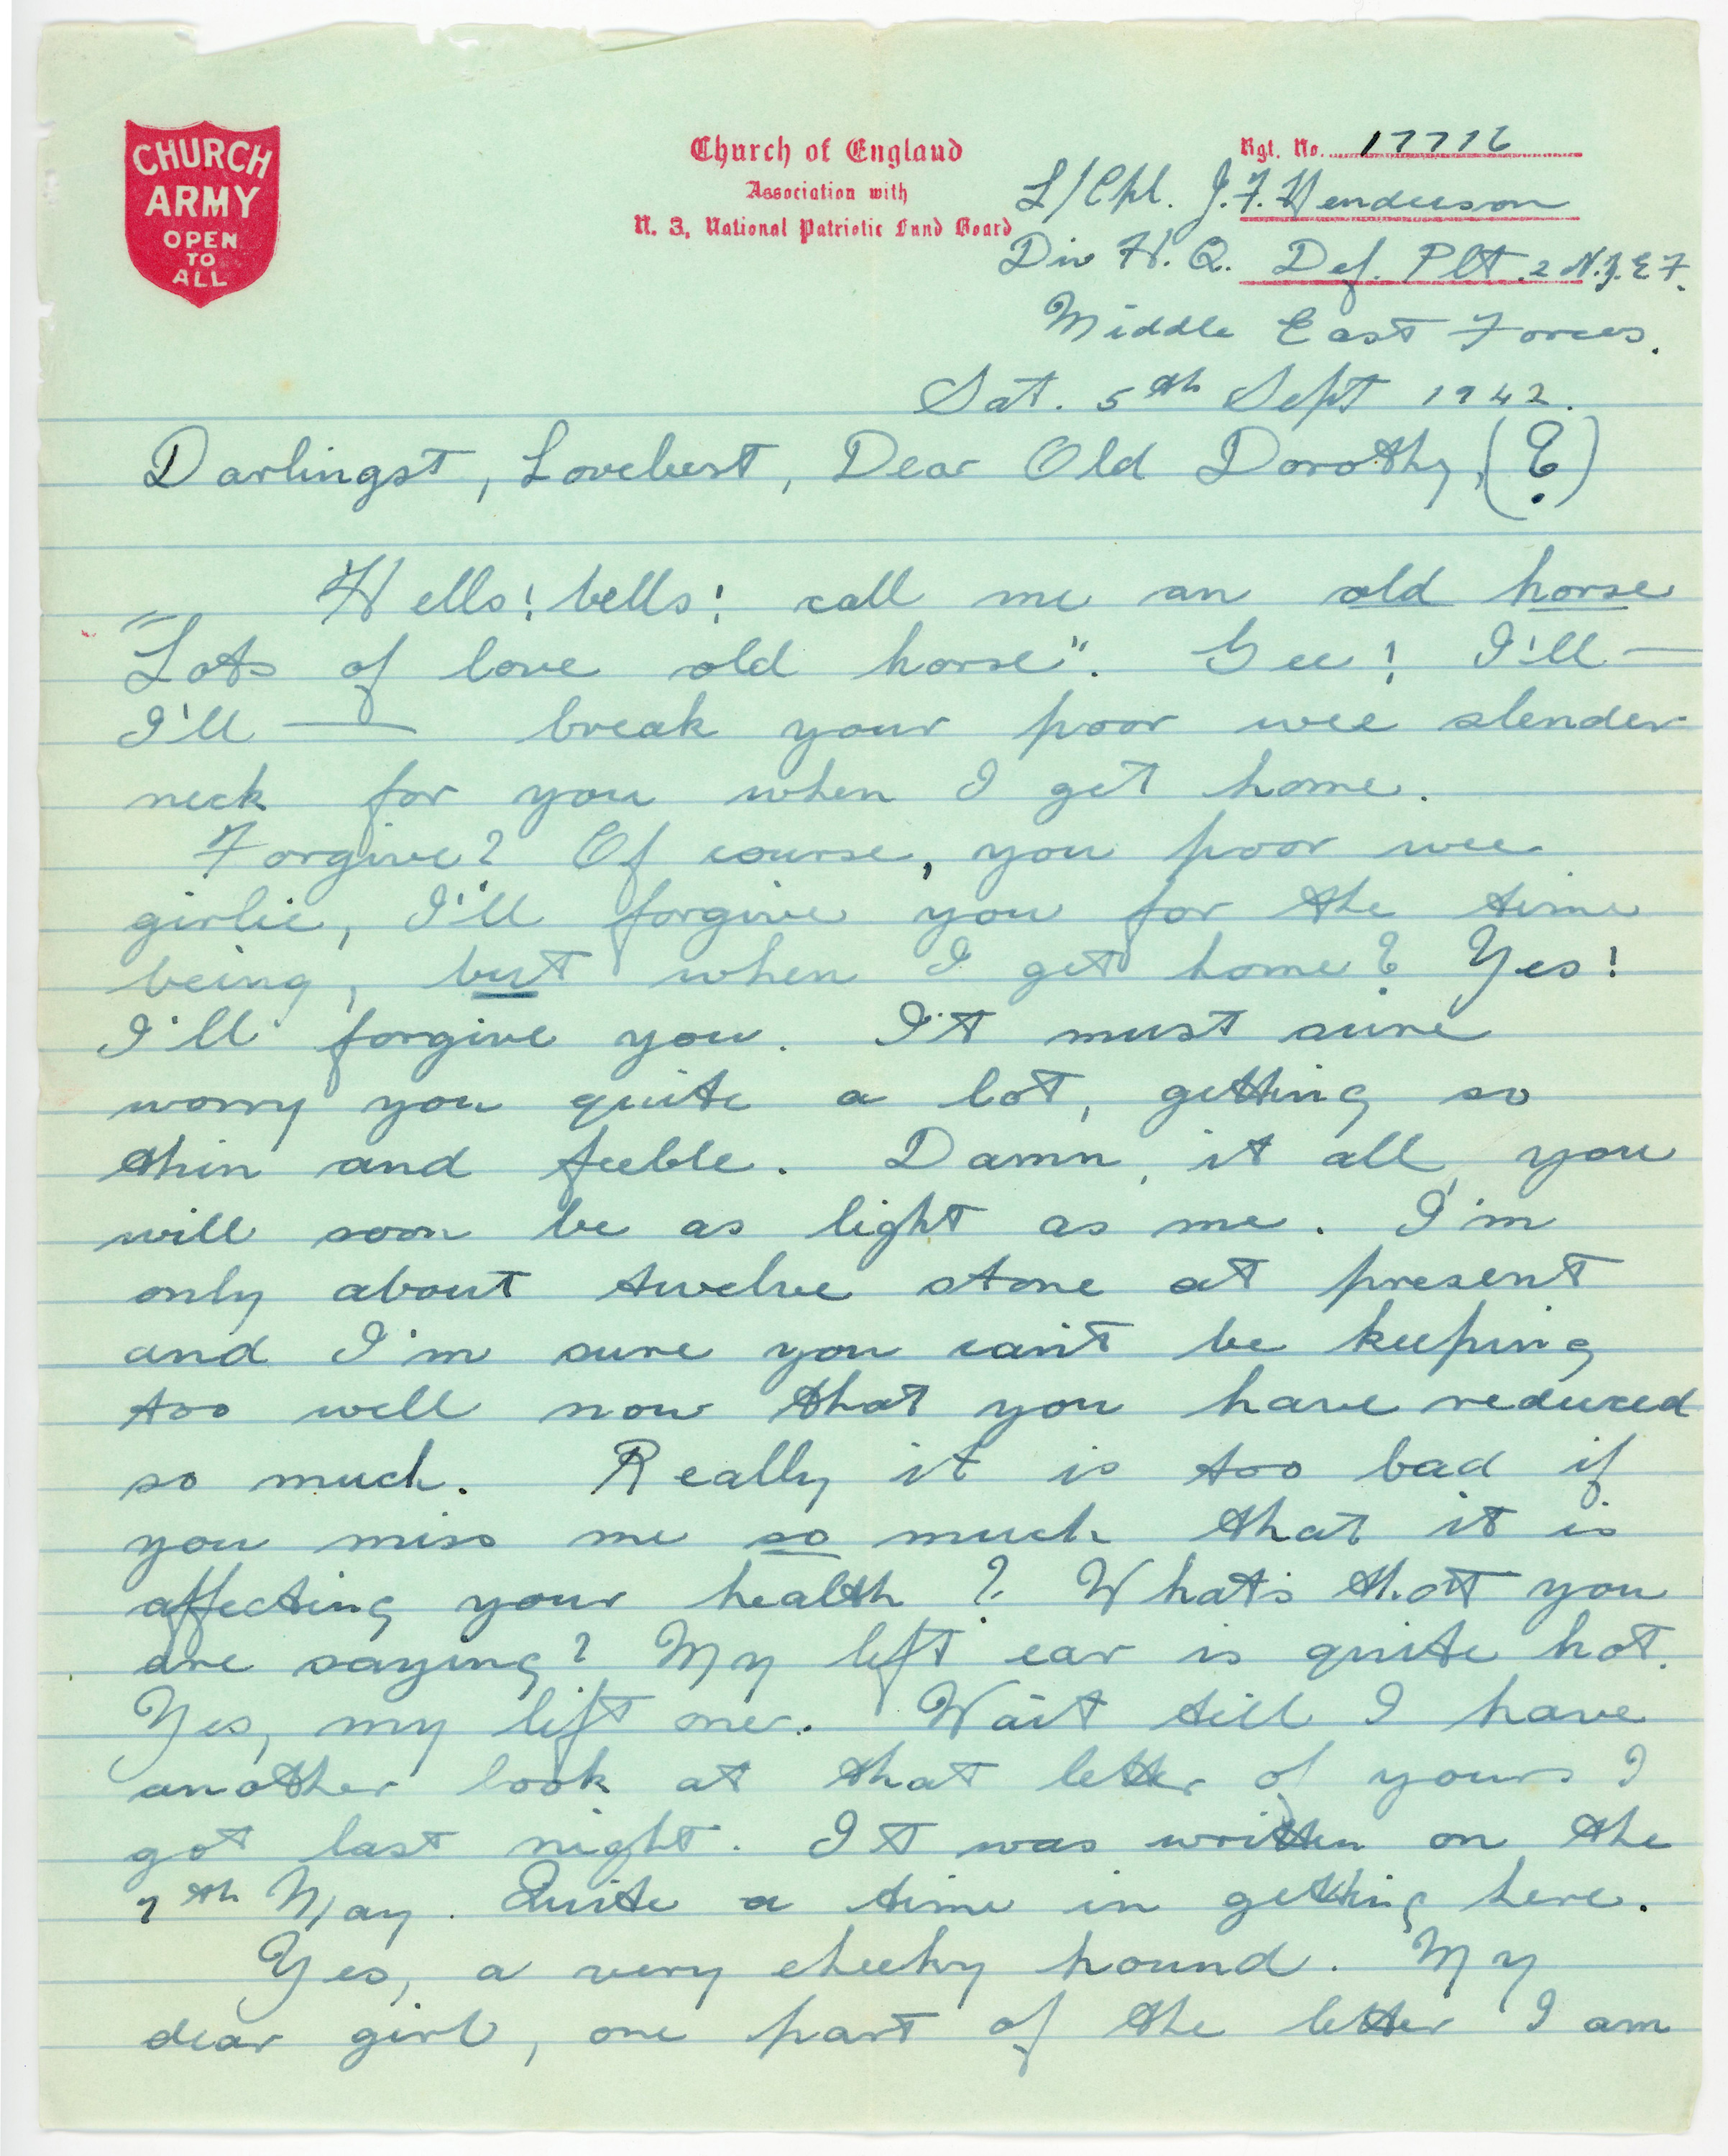 CHURCH
ARMY
OPEN
TO
ALL
Church of England
Association with
N. Z. National Patriotic Fund Board
Rgt. No. 17716
L/Cpl. J. F. Henderson
Div H. Q. Def. Plt. 2 N.Z.E.F.
Middle East Forces.
Sat. 5th Sept 1942.
Darlingst, Lovebest, Dear Old Dorothy, (?)
Hells! bells! call me an old horse
"Lots of love old horse". Gee! I'll —
I'll — break your poor wee slender
neck for you when I get home.
Forgive? Of course, you poor wee
girlie, I'll forgive you for the time
being, but when I get home? Yes!
I'll forgive you. It must sure
worry you quite a lot, getting so
thin and feeble. Damn, it all, you
will soon be as light as me. I'm
only about twelve stone at present
and I'm sure you can't be keeping
too well now that you have reduced
so much. Really it is too bad if
you miss me so much that it is
affecting your health? What's that you
are saying? My left ear is quite hot.
Yes, my left one. Wait till I have
another look at that letter of yours I
got last night. It was written on the
7th May. Quite a time in getting here.
Yes, a very cheeky hound. My
dear girl, one part of the letter I am